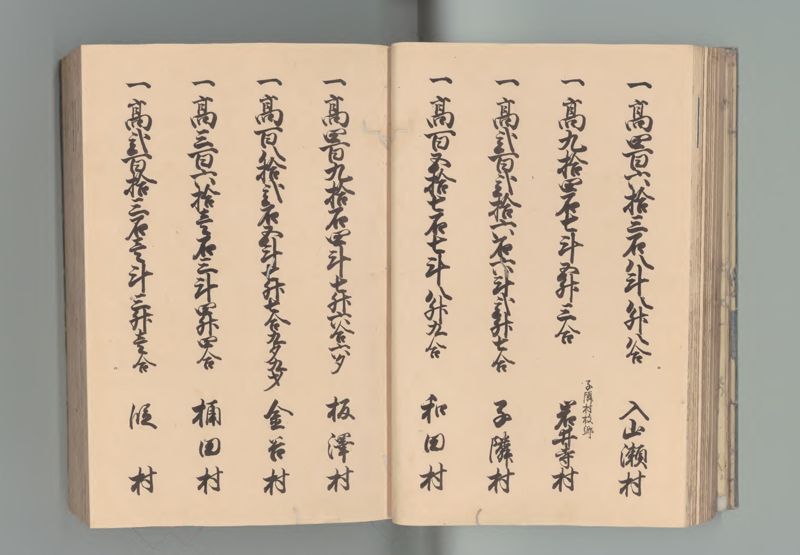 一高四百六拾三石八斗八升八合 入山瀬村
一高九拾四石七斗五升三合 子隣村枝郷 岩井寺村
一高弐百弐拾六石六斗弐升七合 子隣村
一高百五拾七石七斗八升九合 和田村
一高四百九拾石四斗七升六合六夕 板澤村
一高百八拾弐石五斗 升七合九夕九才 金谷村
一高三百六拾壱石三斗四升四合 桶田村
一高弐百拾三石壱斗三升壱合 村